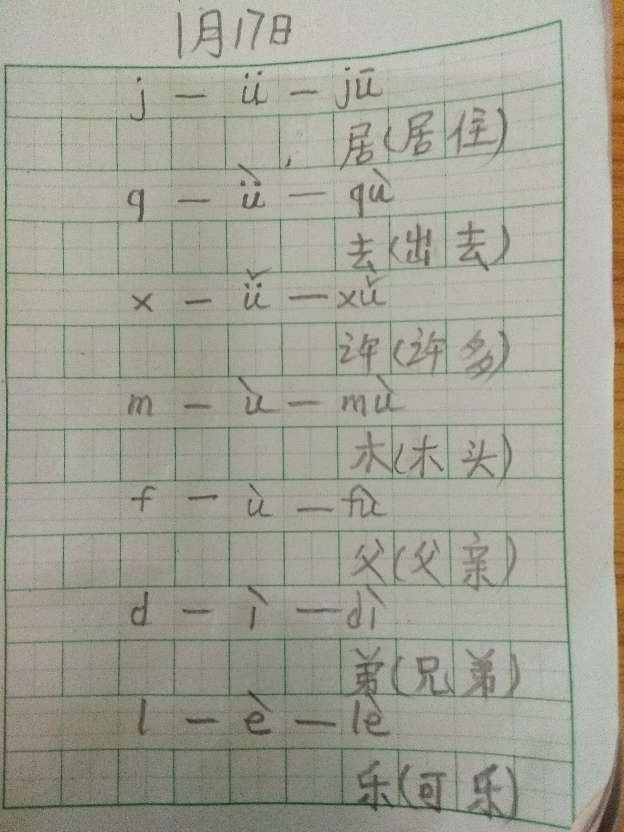 1月17日
j — ǖ — jū
居(居住)
q — ǜ — qù
去(出去)
x — ǚ — xǔ
许(许多)
m — ù — mù
木(木头)
f — ù — fù
父(父亲)
d — ì — dì
弟(兄弟)
l — è — lè
乐(可乐)